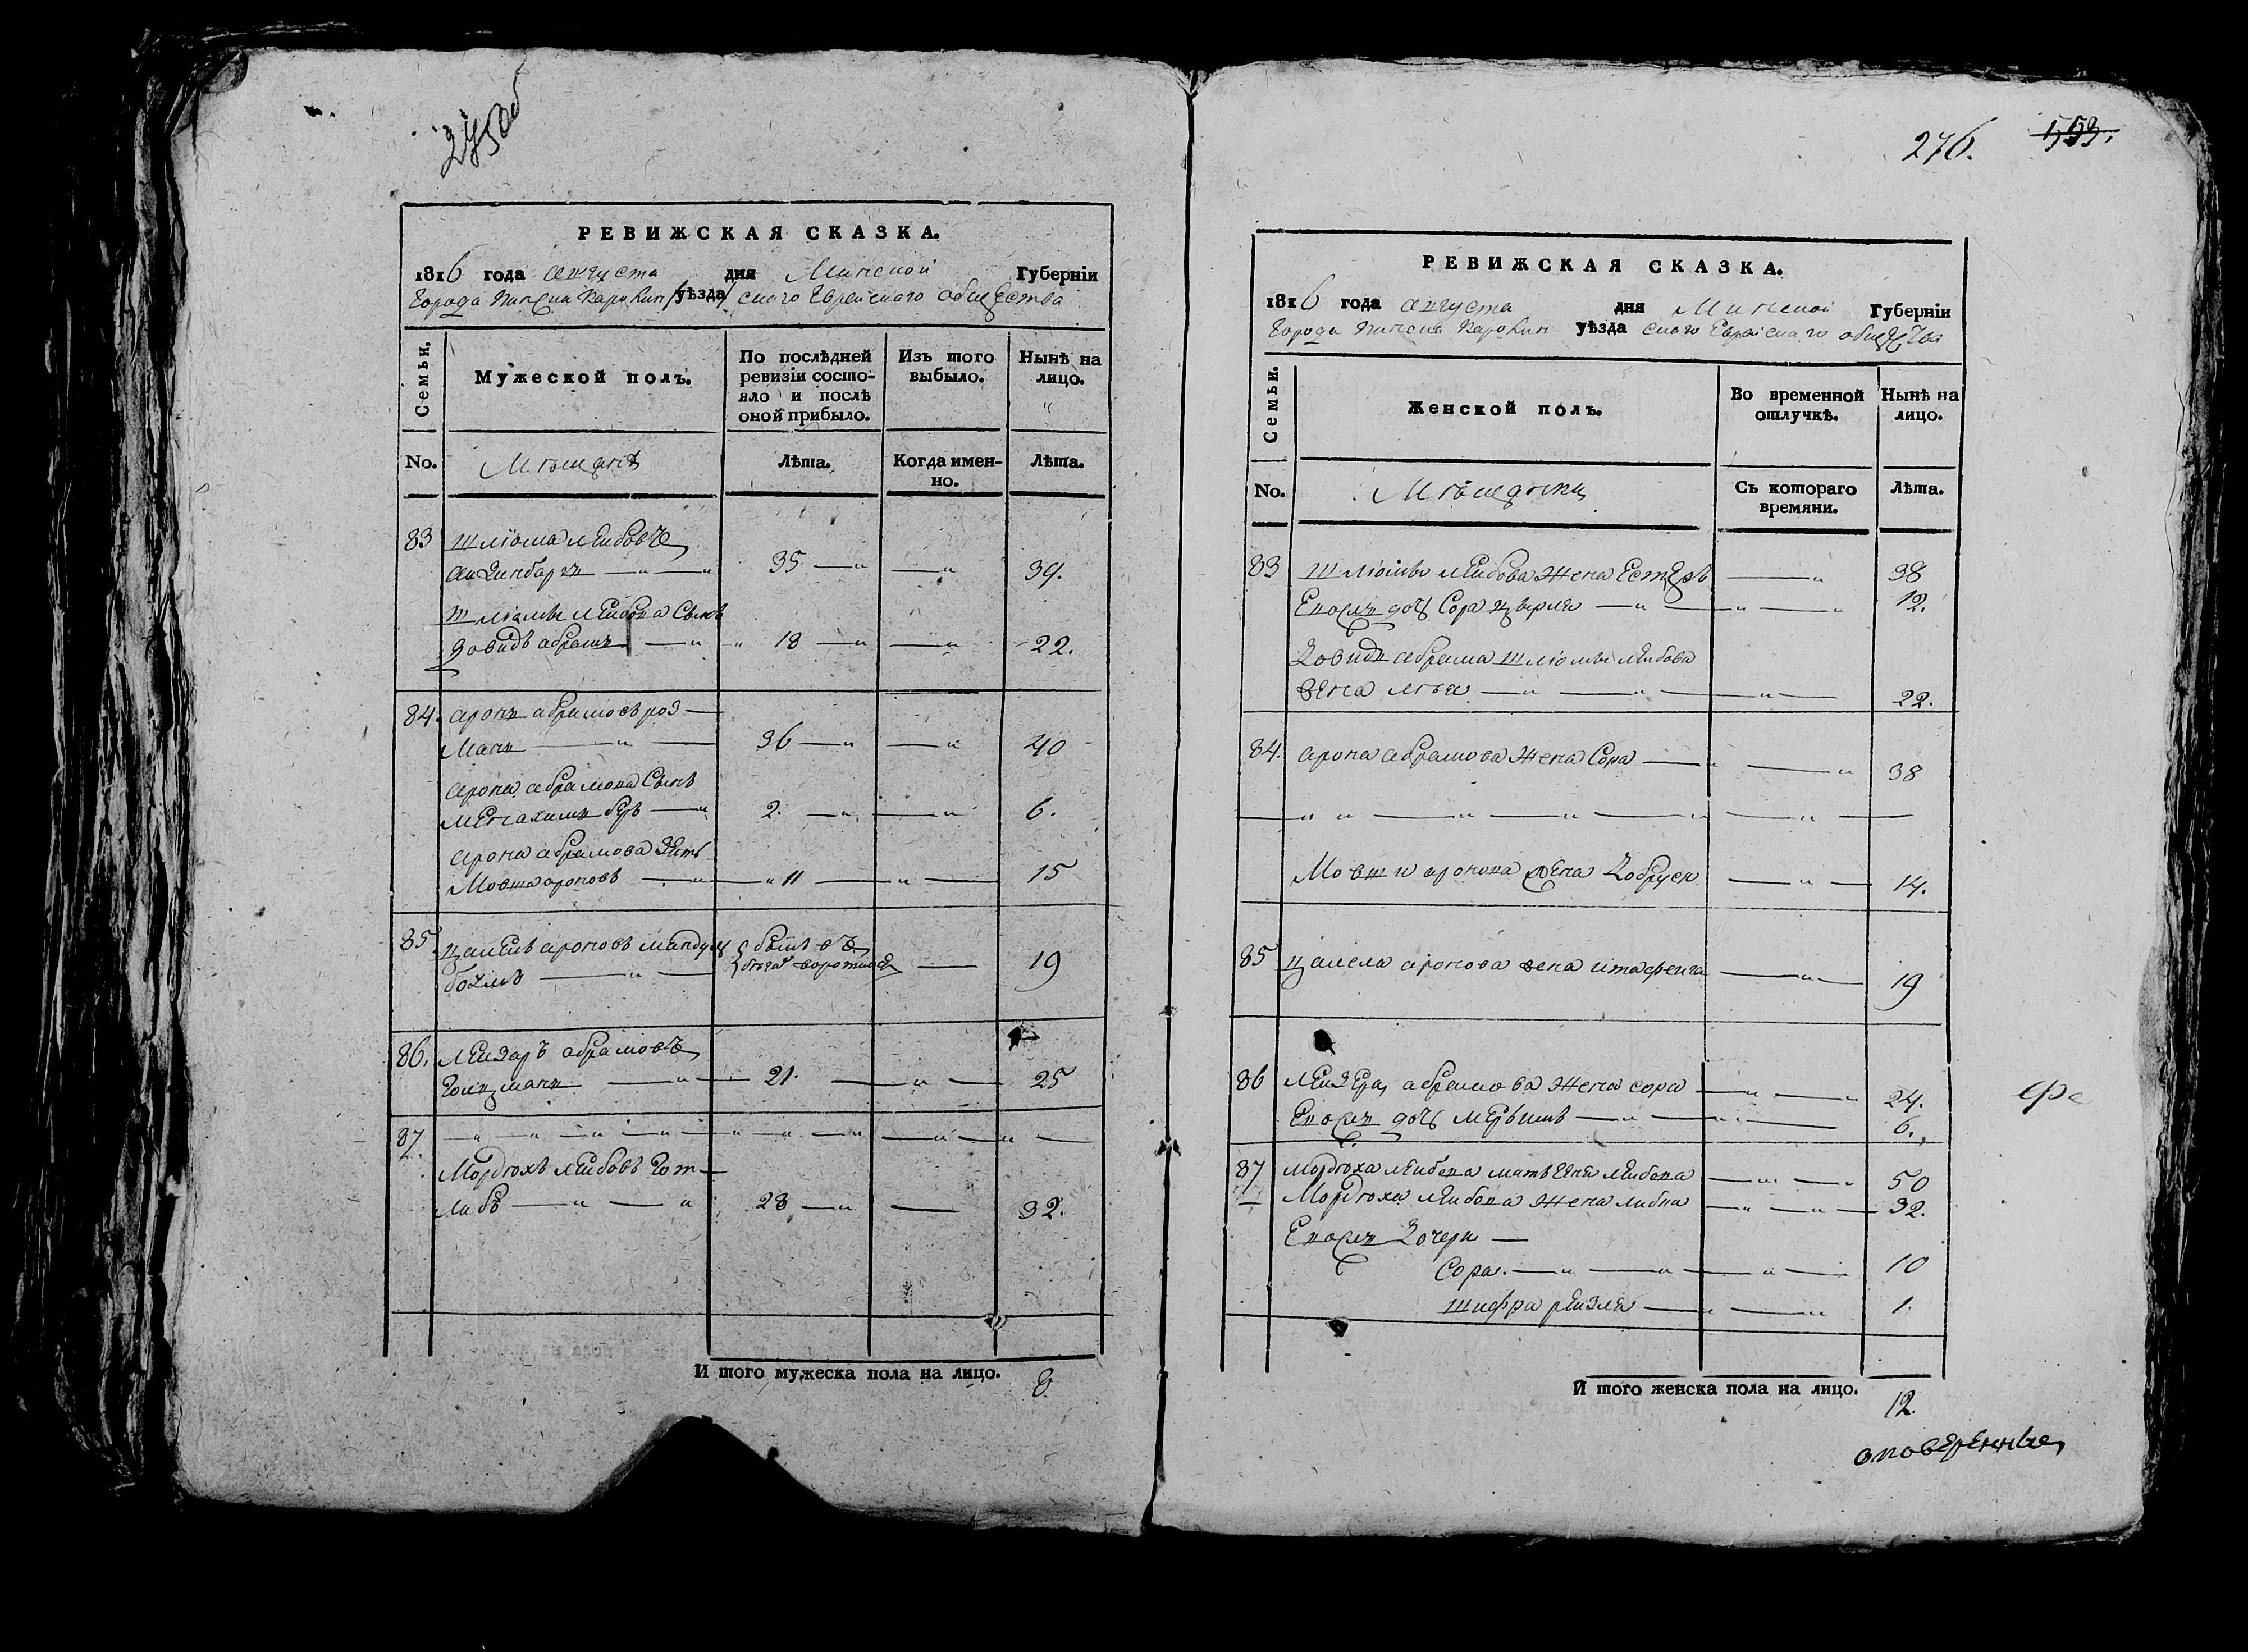 275об
РЕВИЖСКАЯ СКАЗКА.
1816 года августа дня Минской Губерніи
Города Пинска Каролин уѣзда скаго Еврейскаго общества
Семьи.
Мужеской полъ.
По послѣдней ревизіи состояло и послѣ оной прибыло.
Изъ того выбыло.
Нынѣ на лицо.
No. Мѣщанѣ Лѣта. Когда именно. Лѣта.
83 Шліома Лейбовъ
Айзинбаргъ 35 39.
Шліомы Лейбова Сынъ
Довидъ абрамъ 18 22.
84. аронъ абрамовъ роз
манъ 36 40
арона абрамова Сынъ
Менахимъ берь 2. 6.
арона абрамова зять
Мовша ароновъ 11 15
85 цалель ароновъ
19
86. Лейзаръ абрамовъ
Голцманъ 21. 25
87.
Мордюхъ Лейбовъ Гот
либъ 28 32.
И того мужеска пола на лицо. 8
276. 553.
РЕВИЖСКАЯ СКАЗКА.
1816 года августа дня Минской Губерніи
Города Пинска Каролин уѣзда скаго Еврейскаго общества
Семьи.
Женской полъ.
Во временной отлучкѣ.
Нынѣ на лицо.
No. Мѣщанки Съ котораго времяни. Лѣта.
83 Шліомы Лейбова Жена Естерь 38
дочь Сора цырля 12.
Довида абрама Шліомы Лейбова
жена 22.
84. арона абрамова Жена Сора 38
Мовши аронова жена Добруся 14.
85 цалеля аронова жена ита фейга 19
86 Лейзера абрамова Жена сора 24.
дочь 6.
87 Мордюха Лейбова мать Лейбова 50
Мордюха Лейбова Жена Либка 32.
дочери
Сора. 10
Шифра рейзля 1.
И того женска пола на лицо. 12.